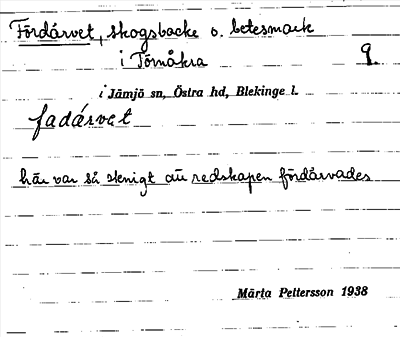 Fördärvet, skogsbacke o. betesmark
i Törnåkra 9.
i Jämjö sn, Östra hd, Blekinge l.
fadárvet
här var så stenigt att redskapen fördärvades
Märta Pettersson 1938